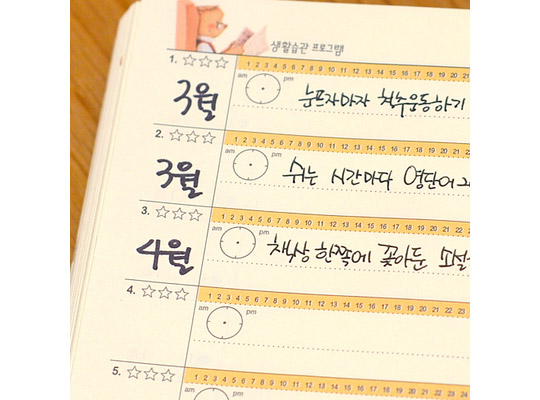 생활습관 프로그램
1. ☆☆☆ 1 2 3 4 5 6 7 8 9 10 11 12 13 14 15 16 17 18 19 20 21
am pm
3월 눈뜨자마자 척추운동하기
2. ☆☆☆ 1 2 3 4 5 6 7 8 9 10 11 12 13 14 15 16 17 18 19 20 21 22
am pm
3월 쉬는 시간마다 영단어
3. ☆☆☆ 1 2 3 4 5 6 7 8 9 10 11 12 13 14 15 16 17 18 19 20 21 22
am pm
4월 책상 한쪽에 꽂아둔 소설
4. ☆☆☆ 1 2 3 4 5 6 7 8 9 10 11 12 13 14 15 16 17 18 19 20 21 22 23
am pm
5. ☆☆☆ 1 2 3 4 5 6 7 8 9 10 11 12 13 14 15 16 17 18 19 20 21 22 23 24
am pm